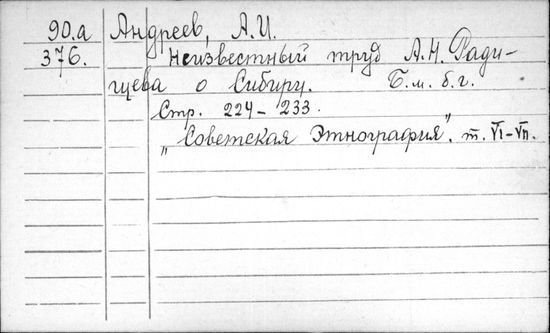 90.а Андреев, А.И.
376. Неизвестный труд А.Н. Ради-
щева о Сибири. Б.м. б.г.
Стр. 224 – 233.
"Советская Этнография". т. VI–VII.